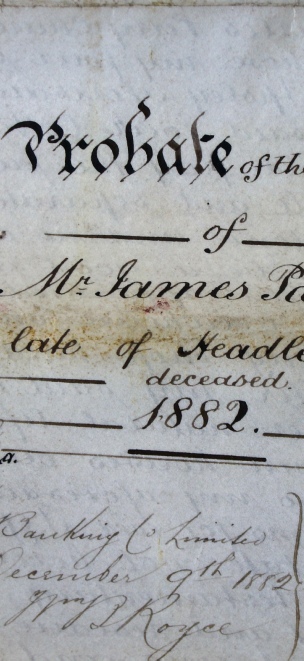 Probate of th
of
Mr. James Pa
late of Headle
deceased.
1882.
a.
Banking Co Limited
December 9th 1882
Royce